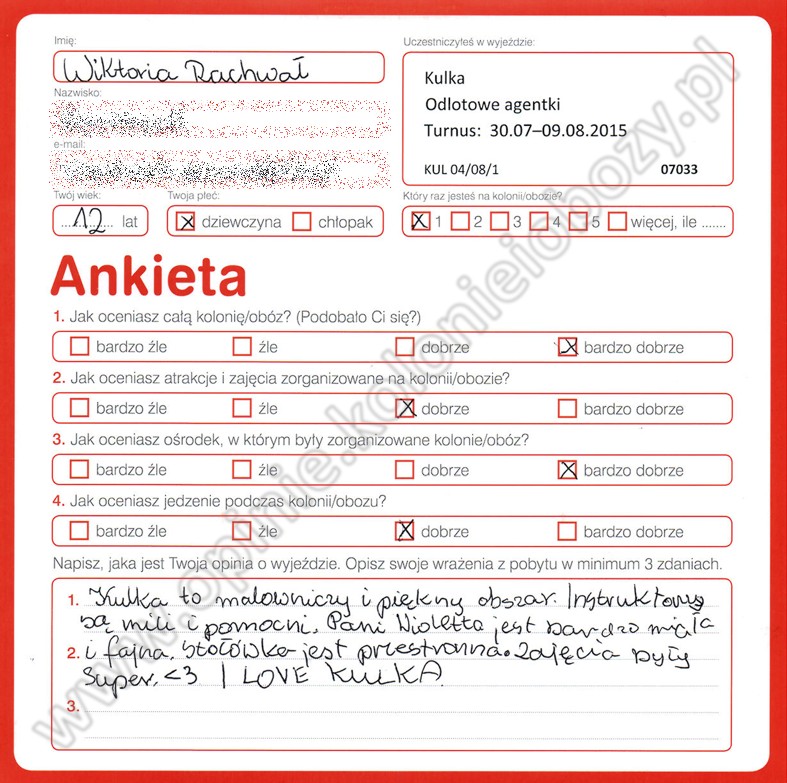 Imię:
Wiktoria Rachwał
Nazwisko:
e-mail:
Twój wiek:
12 lat
Twoja płeć:
x dziewczyna chłopak
Uczestniczyłeś w wyjeździe:
Kulka
Odlotowe agentki
Turnus: 30.07–09.08.2015
KUL 04/08/1 07033
Który raz jesteś na kolonii/obozie?
x 1 2 3 4 5 więcej, ile .......
Ankieta
1. Jak oceniasz całą kolonię/obóz? (Podobało Ci się?)
bardzo źle źle dobrze x bardzo dobrze
2. Jak oceniasz atrakcje i zajęcia zorganizowane na kolonii/obozie?
bardzo źle źle x dobrze bardzo dobrze
3. Jak oceniasz ośrodek, w którym były zorganizowane kolonie/obóz?
bardzo źle źle dobrze x bardzo dobrze
4. Jak oceniasz jedzenie podczas kolonii/obozu?
bardzo źle źle x dobrze bardzo dobrze
Napisz, jaka jest Twoja opinia o wyjeździe. Opisz swoje wrażenia z pobytu w minimum 3 zdaniach.
1. Kulka to malowniczy i piękny obszar. Instruktorzy
są mili i pomocni. Pani Violetta jest bardzo miła
2. i fajna. Stołówka jest przestronna. Zajęcia były
Super. <3 I LOVE KULKA
3.
www.opinie.kolonieiobozy.pl